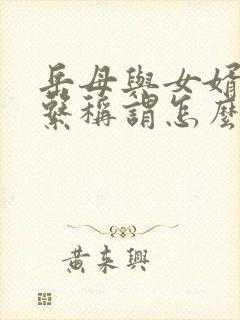 岳母與女婿
繫稱謂怎麼
黃東興